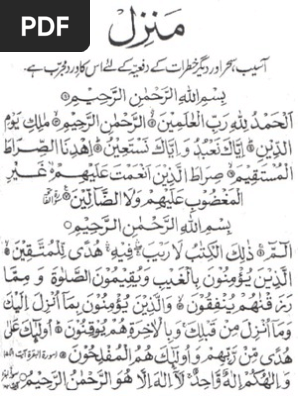 PDF
منزل
آسیب، سحر اور دیگر خطرات کے دفعیہ کے لئے اس کا ورد مجرّب ہے۔
بِسْمِ اللهِ الرَّحْمٰنِ الرَّحِيْمِ
اَلْحَمْدُ لِلّٰهِ رَبِّ الْعٰلَمِيْنَ۝ الرَّحْمٰنِ الرَّحِيْمِ۝ مٰلِكِ يَوْمِ
الدِّيْنِ۝ اِيَّاكَ نَعْبُدُ وَاِيَّاكَ نَسْتَعِيْنُ۝ اِهْدِنَا الصِّرَاطَ
الْمُسْتَقِيْمَ۝ صِرَاطَ الَّذِيْنَ اَنْعَمْتَ عَلَيْهِمْ غَيْرِ
الْمَغْضُوْبِ عَلَيْهِمْ وَلَا الضَّآلِّيْنَ۝
بِسْمِ اللهِ الرَّحْمٰنِ الرَّحِيْمِ
الٓمّٓ۝ ذٰلِكَ الْكِتٰبُ لَا رَيْبَ فِيْهِ هُدًى لِّلْمُتَّقِيْنَ۝
الَّذِيْنَ يُؤْمِنُوْنَ بِالْغَيْبِ وَيُقِيْمُوْنَ الصَّلٰوةَ وَمِمَّا
رَزَقْنٰهُمْ يُنْفِقُوْنَ۝ وَالَّذِيْنَ يُؤْمِنُوْنَ بِمَآ اُنْزِلَ اِلَيْكَ
وَمَآ اُنْزِلَ مِنْ قَبْلِكَ وَبِالْاٰخِرَةِ هُمْ يُوْقِنُوْنَ۝ اُولٰٓئِكَ عَلٰى
هُدًى مِّنْ رَّبِّهِمْ وَاُولٰٓئِكَ هُمُ الْمُفْلِحُوْنَ۝ (سورة البقرة
وَاِلٰهُكُمْ اِلٰهٌ وَّاحِدٌ لَآ اِلٰهَ اِلَّا هُوَ الرَّحْمٰنُ الرَّحِيْمُ۝